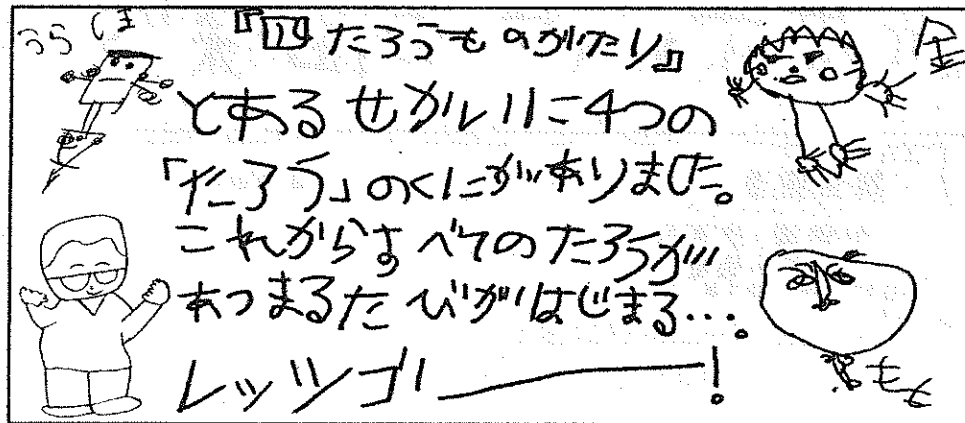 うらしま
『四たろうものがたり』
金
とあるせかいに4つの
「たろう」のくにがありました。
これからすべてのたろうが
あつまるたびがはじまる…。
レッツゴー！
もも